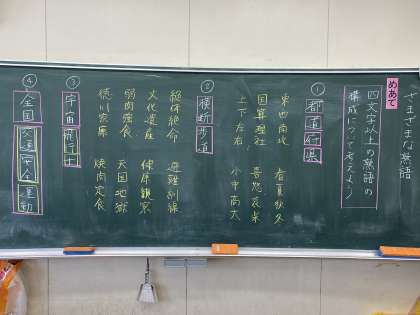 さまざまな熟語
めあて
四文字以上の熟語の
構成について考えよう
① 都道府県
東西南北 春夏秋冬
国算理社 喜怒哀楽
上下左右 小中高大
② 横断歩道
絶体絶命 避難訓練
文化遺産 健康観察
弱肉強食 天国地獄
徳川家康 焼肉定食
③ 宇宙飛行士
④ 全国交通安全運動